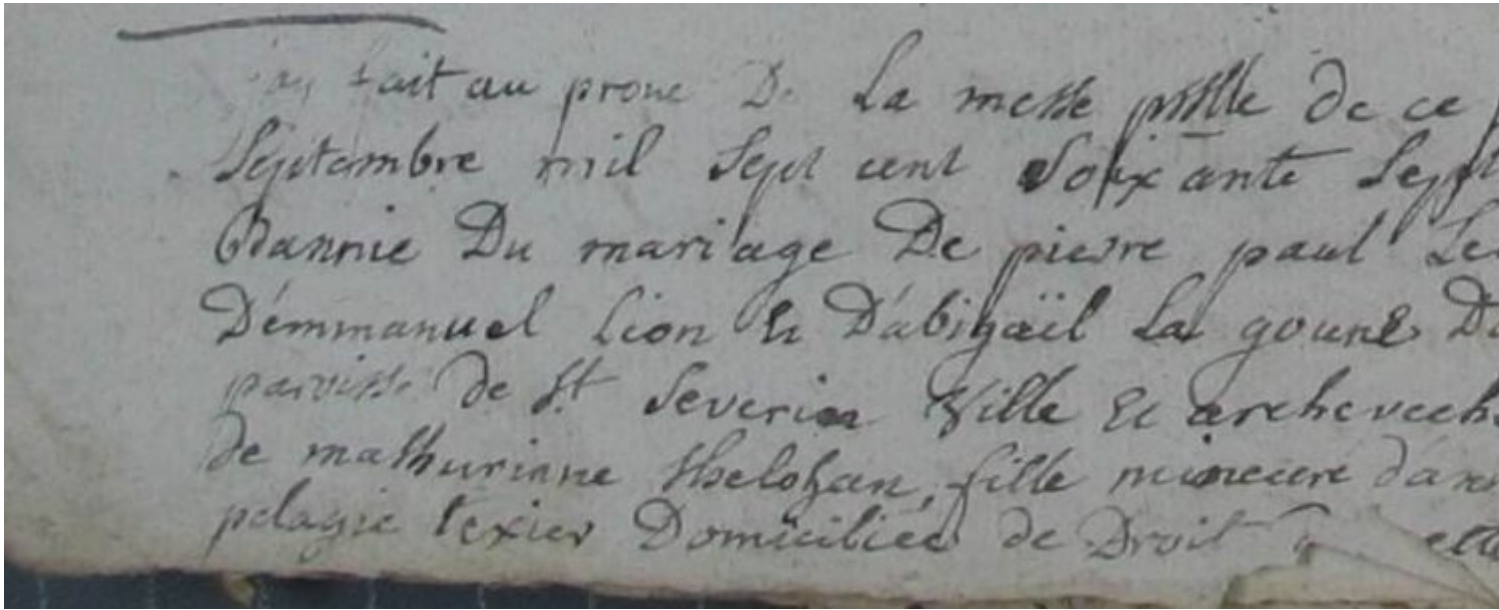 fait au prone De La messe pnlle de ce
Septembre mil Sept cent Soixante Sept
Bannie Du mariage De pierre paul
Démmanuel Lion Et D'abigaïl La goune
paroisse de St Severin Ville Et archevech
de mathurinne thelohan, fille mineure
pelagie texier Domiciliée de Droit